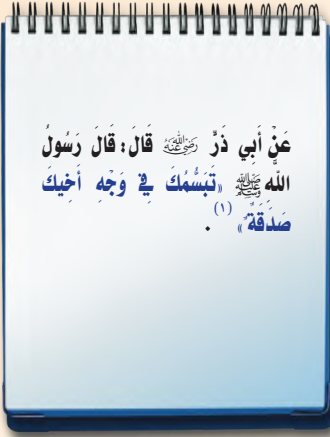 عَنْ أَبِي ذَرٍّ رَضِيَ اللَّهُ عَنْهُ قَالَ: قَالَ رَسُولُ
اللَّهِ ﷺ «تَبَسُّمُكَ فِي وَجْهِ أَخِيكَ
صَدَقَةٌ» (١).